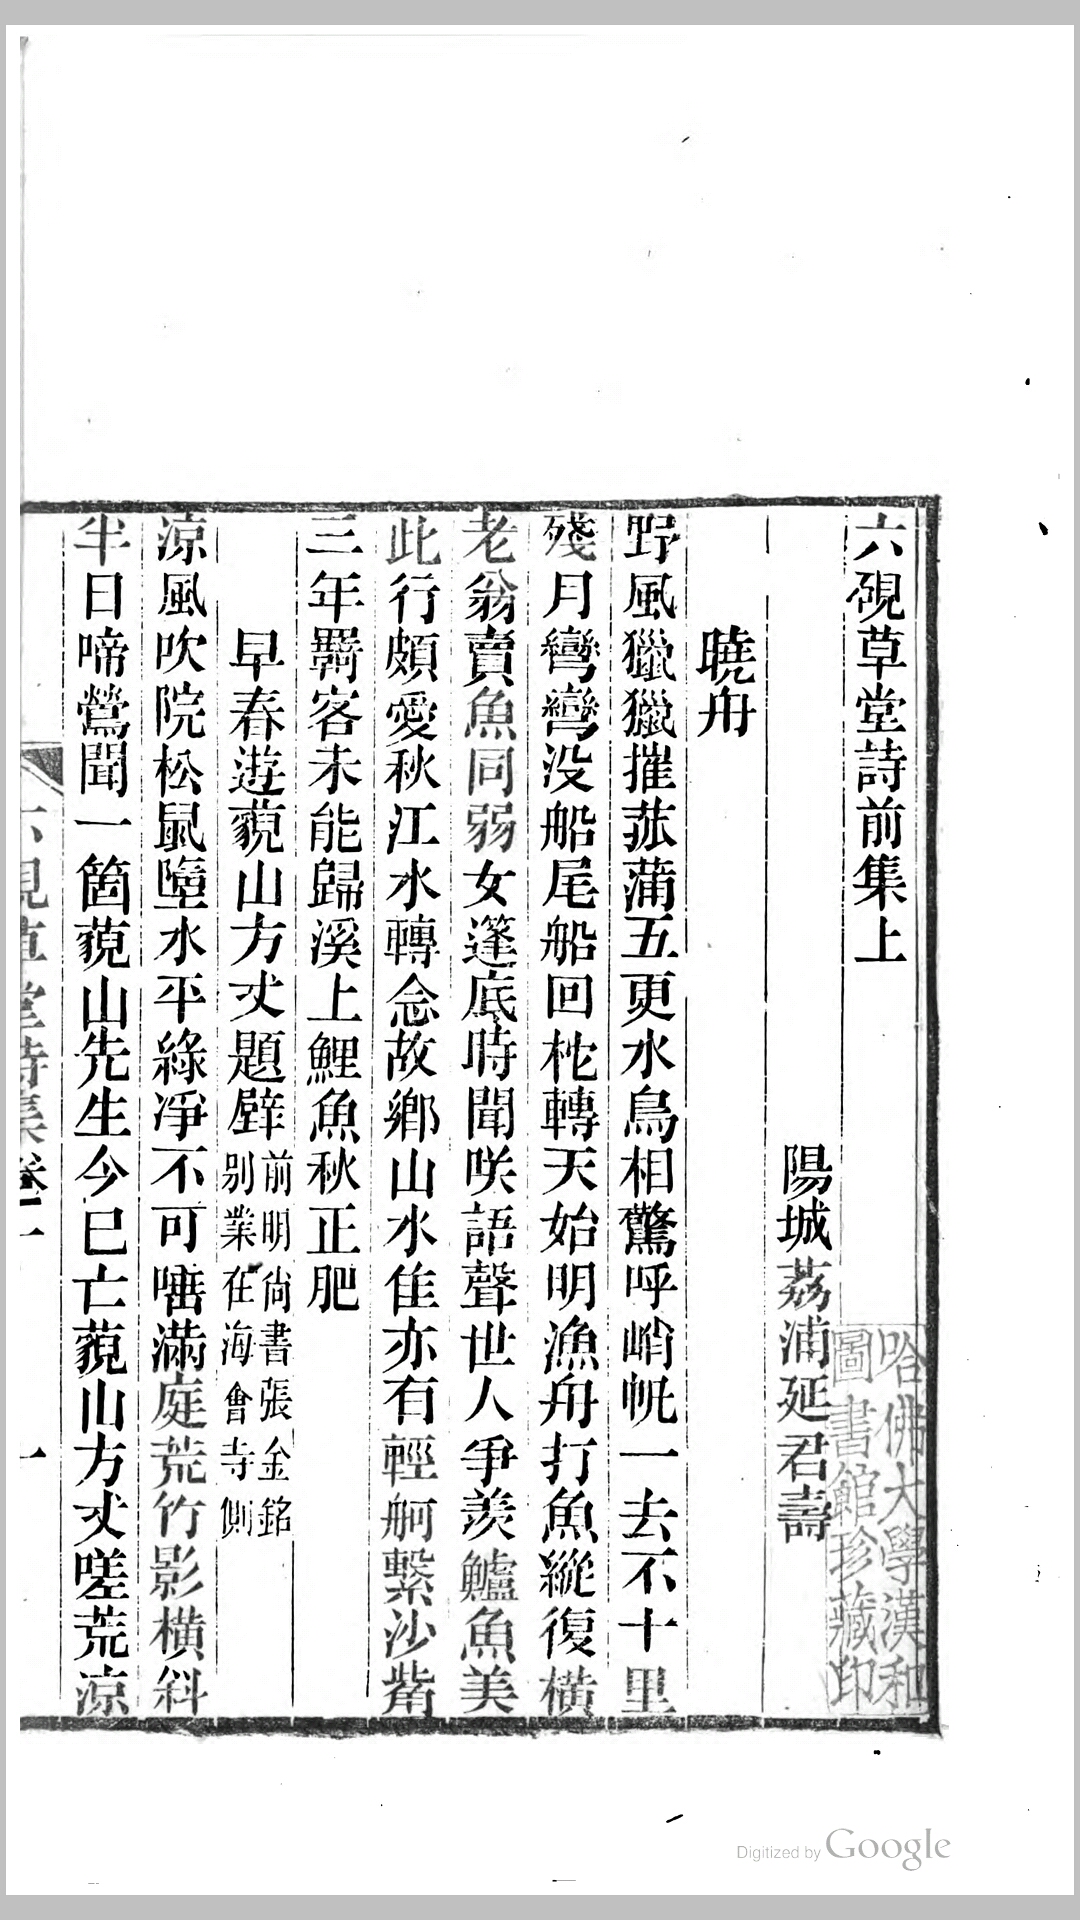 六硯草堂詩前集上
陽城荔浦延君壽
曉舟
野風獵獵摧菰蒲五更水鳥相驚呼峭帆一去不十里
殘月彎彎没船尾船回柁轉天始明漁舟打魚縱復橫
老翁賣魚同弱女篷底時聞咲語聲世人爭羨鱸魚美
此行頗愛秋江水轉念故鄉山水佳亦有輕舸繫沙觜
三年羇客未能歸溪上鯉魚秋正肥
早春遊藐山方丈題壁前明尙書張金銘
别業在海會寺側
涼風吹院松鼠墮水平綠凈不可唾滿庭荒竹影橫斜
半日啼鶯聞一箇藐山先生今已亡藐山方丈嗟荒涼
六硯草堂詩集卷一
一
哈佛大學漢和
圖書館珍藏印
Digitized by Google